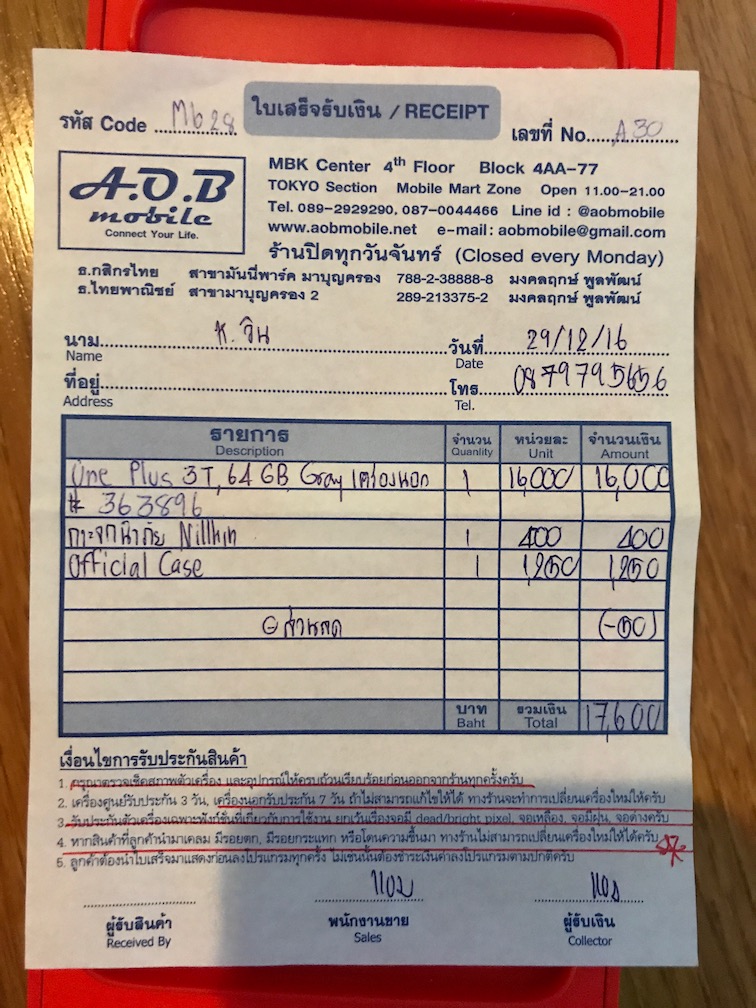 ใบเสร็จรับเงิน / RECEIPT
รหัส Code Mb28
เลขที่ No. A30
A.O.B
mobile
Connect Your Life.
MBK Center 4th Floor Block 4AA-77
TOKYO Section Mobile Mart Zone Open 11.00-21.00
Tel. 089-2929290, 087-0044466 Line id : @aobmobile
www.aobmobile.net e-mail: aobmobile@gmail.com
ร้านปิดทุกวันจันทร์ (Closed every Monday)
ธ.กสิกรไทย สาขามันนี่พาร์ค มาบุญครอง 788-2-38888-8 มงคลฤกษ์ พูลพัฒน์
ธ.ไทยพาณิชย์ สาขามาบุญครอง 2 289-213375-2 มงคลฤกษ์ พูลพัฒน์
นาม ค. จิน วันที่ 29/12/16
Name Date
ที่อยู่ โทร 0879795656
Address Tel.
รายการ จำนวน หน่วยละ จำนวนเงิน
Description Quanlity Unit Amount
One Plus 3T, 64 GB Gray เครื่องนอก 1 16,000 16,000
# 363896
กระจกนิรภัย Nillkin 1 400 400
Official Case 1 1,250 1,250
ส่วนลด (-50)
บาท รวมเงิน 17,600
Baht Total
เงื่อนไขการรับประกันสินค้า
1. กรุณาตรวจเช็คสภาพตัวเครื่อง และอุปกรณ์ให้ครบถ้วนเรียบร้อยก่อนออกจากร้านทุกครั้งครับ
2. เครื่องศูนย์รับประกัน 3 วัน, เครื่องนอกรับประกัน 7 วัน ถ้าไม่สามารถแก้ไขให้ได้ ทางร้านจะทำการเปลี่ยนเครื่องใหม่ให้ครับ
3. รับประกันตัวเครื่องเฉพาะฟังก์ชั่นที่เกี่ยวกับการใช้งาน ยกเว้นเรื่องจอมี dead/bright pixel, จอเหลือง, จอมีฝุ่น, จอด่างครับ
4. หากสินค้าที่ลูกค้านำมาเคลม มีรอยตก, มีรอยกระแทก หรือโดนความชื้นมา ทางร้านไม่สามารถเปลี่ยนเครื่องใหม่ให้ได้ครับ
5. ลูกค้าต้องนำใบเสร็จมาแสดงก่อนลงโปรแกรมทุกครั้ง ไม่เช่นนั้นต้องชำระเงินค่าลงโปรแกรมตามปกติครับ
ผู้รับสินค้า พนักงานขาย ผู้รับเงิน
Received By Sales Collector